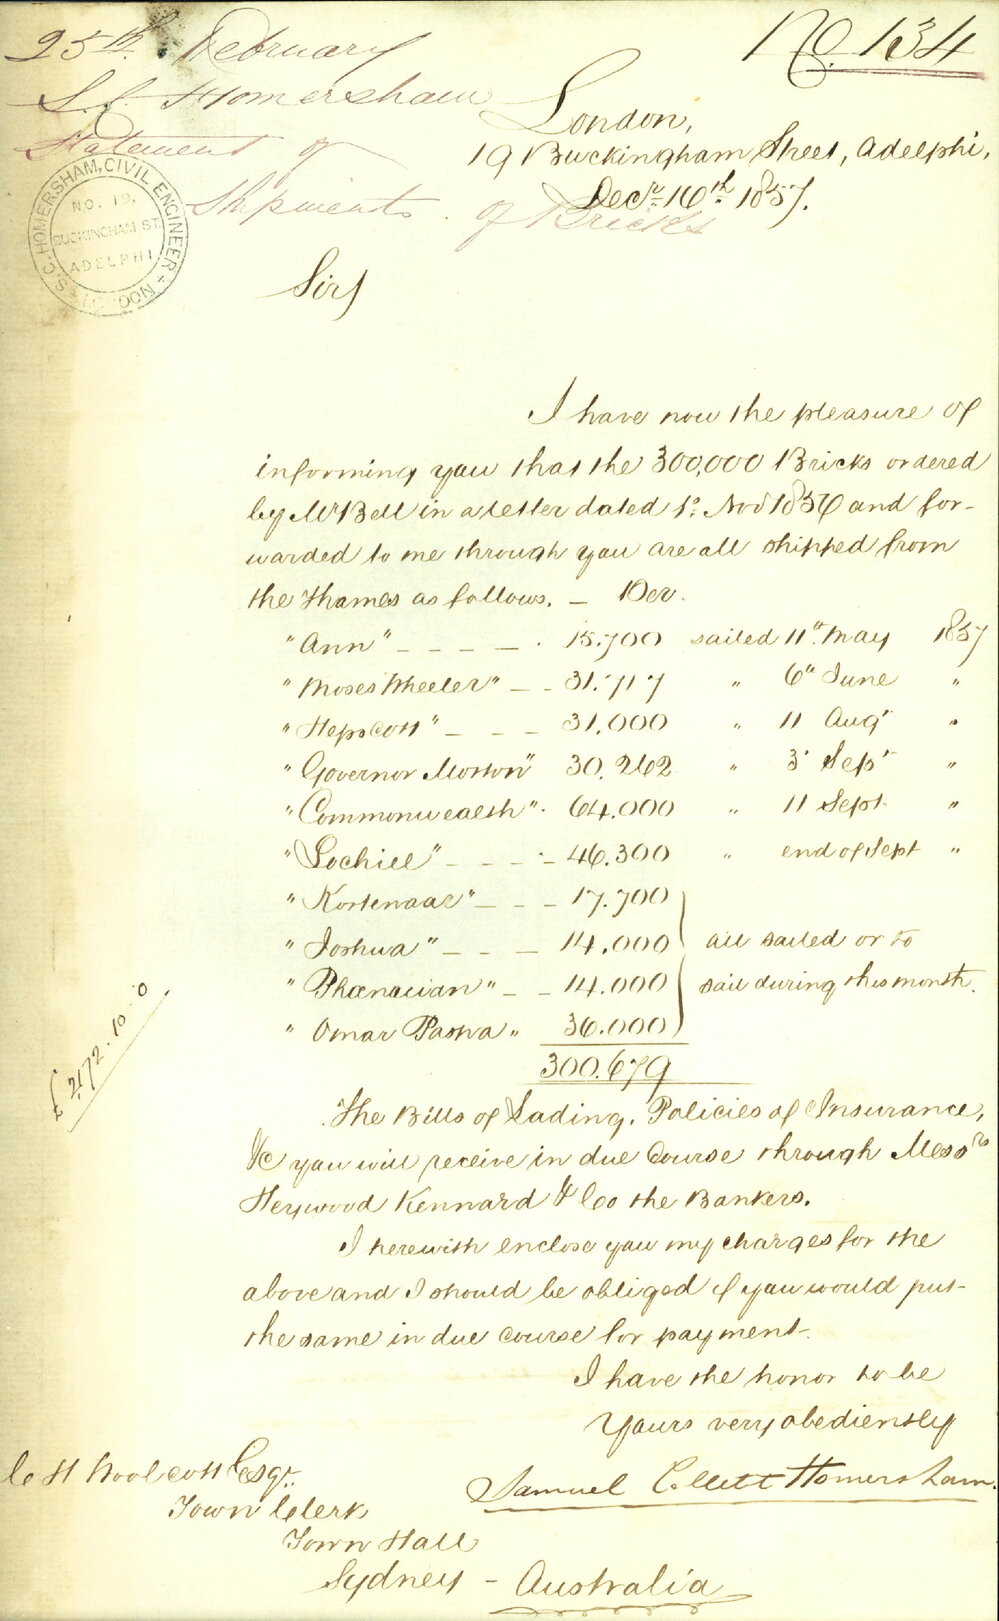 No. 134
25th February
S. C. Homersham
Statement of
Shipments of Bricks
S.C. HOMERSHAM, CIVIL ENGINEER
NO. 19,
BUCKINGHAM ST.
ADELPHI
LONDON
London,
19 Buckingham Street, Adelphi,
Decr. 16th 1857.
Sir/
I have now the pleasure of
informing you that the 300,000 Bricks ordered
by Mr Bell in a letter dated 1st Nov 1856 and for-
warded to me through you are all shipped from
the Thames as follows. — Per.
"Ann" — — — — . 15.700 sailed 11th May 1857
"Moses Wheeler" — — 31.717 " 6th June "
"Hepscott" — — — 31.000 " 11 Augt "
"Governor Morton" 30.262 " 3 Sept "
"Commonwealth" . 64.000 " 11 Sept "
"Lochiel" — — — — 46.300 " end of Sept "
"Kortenaar" — — — 17.700
"Joshua" — — — 14.000 all sailed or to
"Phoenacian" — — 14.000 sail during this month.
"Omar Pasha" 36.000
300.679
£2172.10.0
The Bills of Lading, Policies of Insurance,
&c you will receive in due Course through Messrs
Heywood Kennard & Co the Bankers.
I herewith enclose you my charges for the
above and I should be obliged if you would put
the same in due course for payment.
I have the honor to be
Yours very obediently
Samuel Collett Homersham.
C H Woolcott Esqr.
Town Clerk
Town Hall
Sydney - Australia